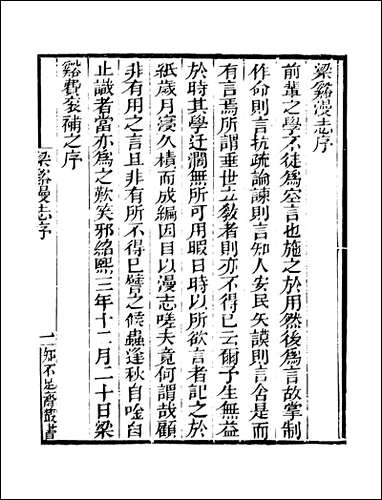 梁谿漫志序
前輩之學不徒爲空言也施之於用然後爲言故掌制
作命則言抗疏論諫則言知人安民矢謨則言舍是而
有言焉所謂垂世立敎者則亦不得已云爾子生無益
於時其學迂濶無所可用暇日時以所欲言者記之於
紙歲月寖久積而成編因目以漫志嗟夫竟何謂哉顧
非有用之言且非有所不得已譬之候蟲逢秋自唫自
止識者當亦爲之歎笑邪紹熙三年十二月二十日梁
谿費袞補之序
梁谿漫志序
一 知不足齋叢書